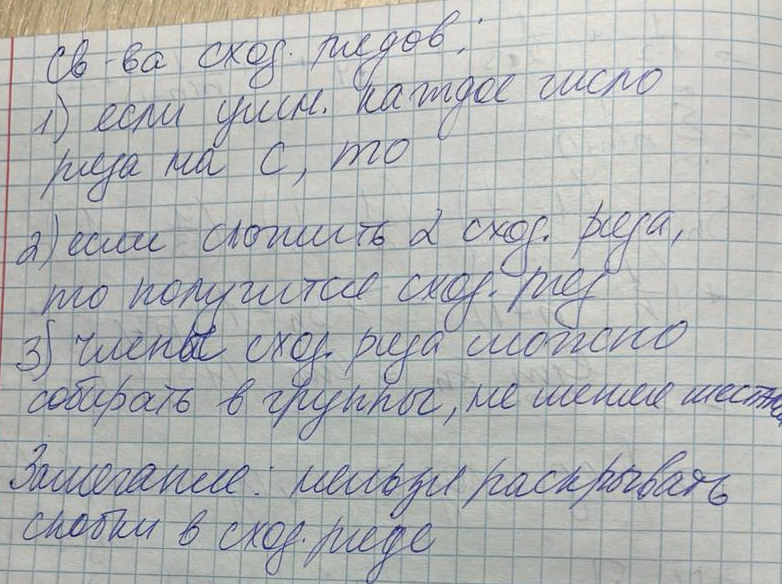 Св-ва сход. рядов:
1) если умн. каждое число
ряда на С, то
2) если сложить 2 сход. ряда,
то получится сход. ряд
3) члены сход. ряда можно
собирать в группы, не меняя местами
Замечание: нельзя раскрывать
скобки в сход. ряде